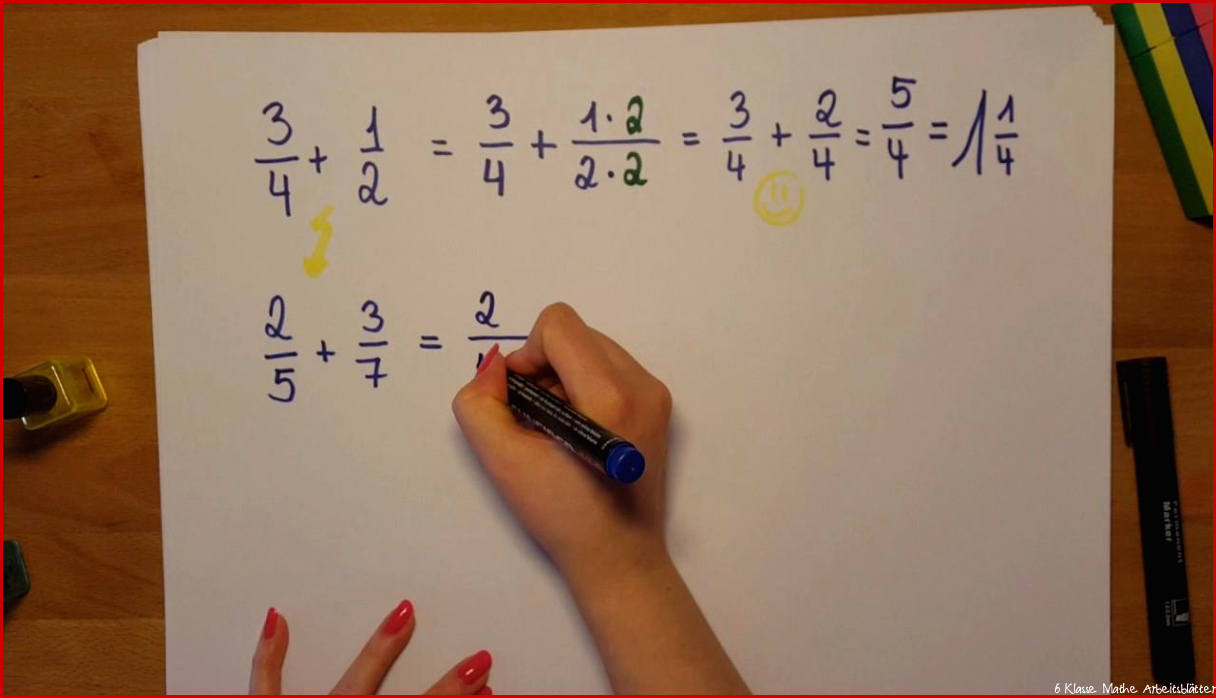 3/4 + 1/2 = 3/4 + 1·2/2·2 = 3/4 + 2/4 = 5/4 = 1 1/4
2/5 + 3/7 = 2
Marker
6 Klasse Mathe Arbeitsblätter